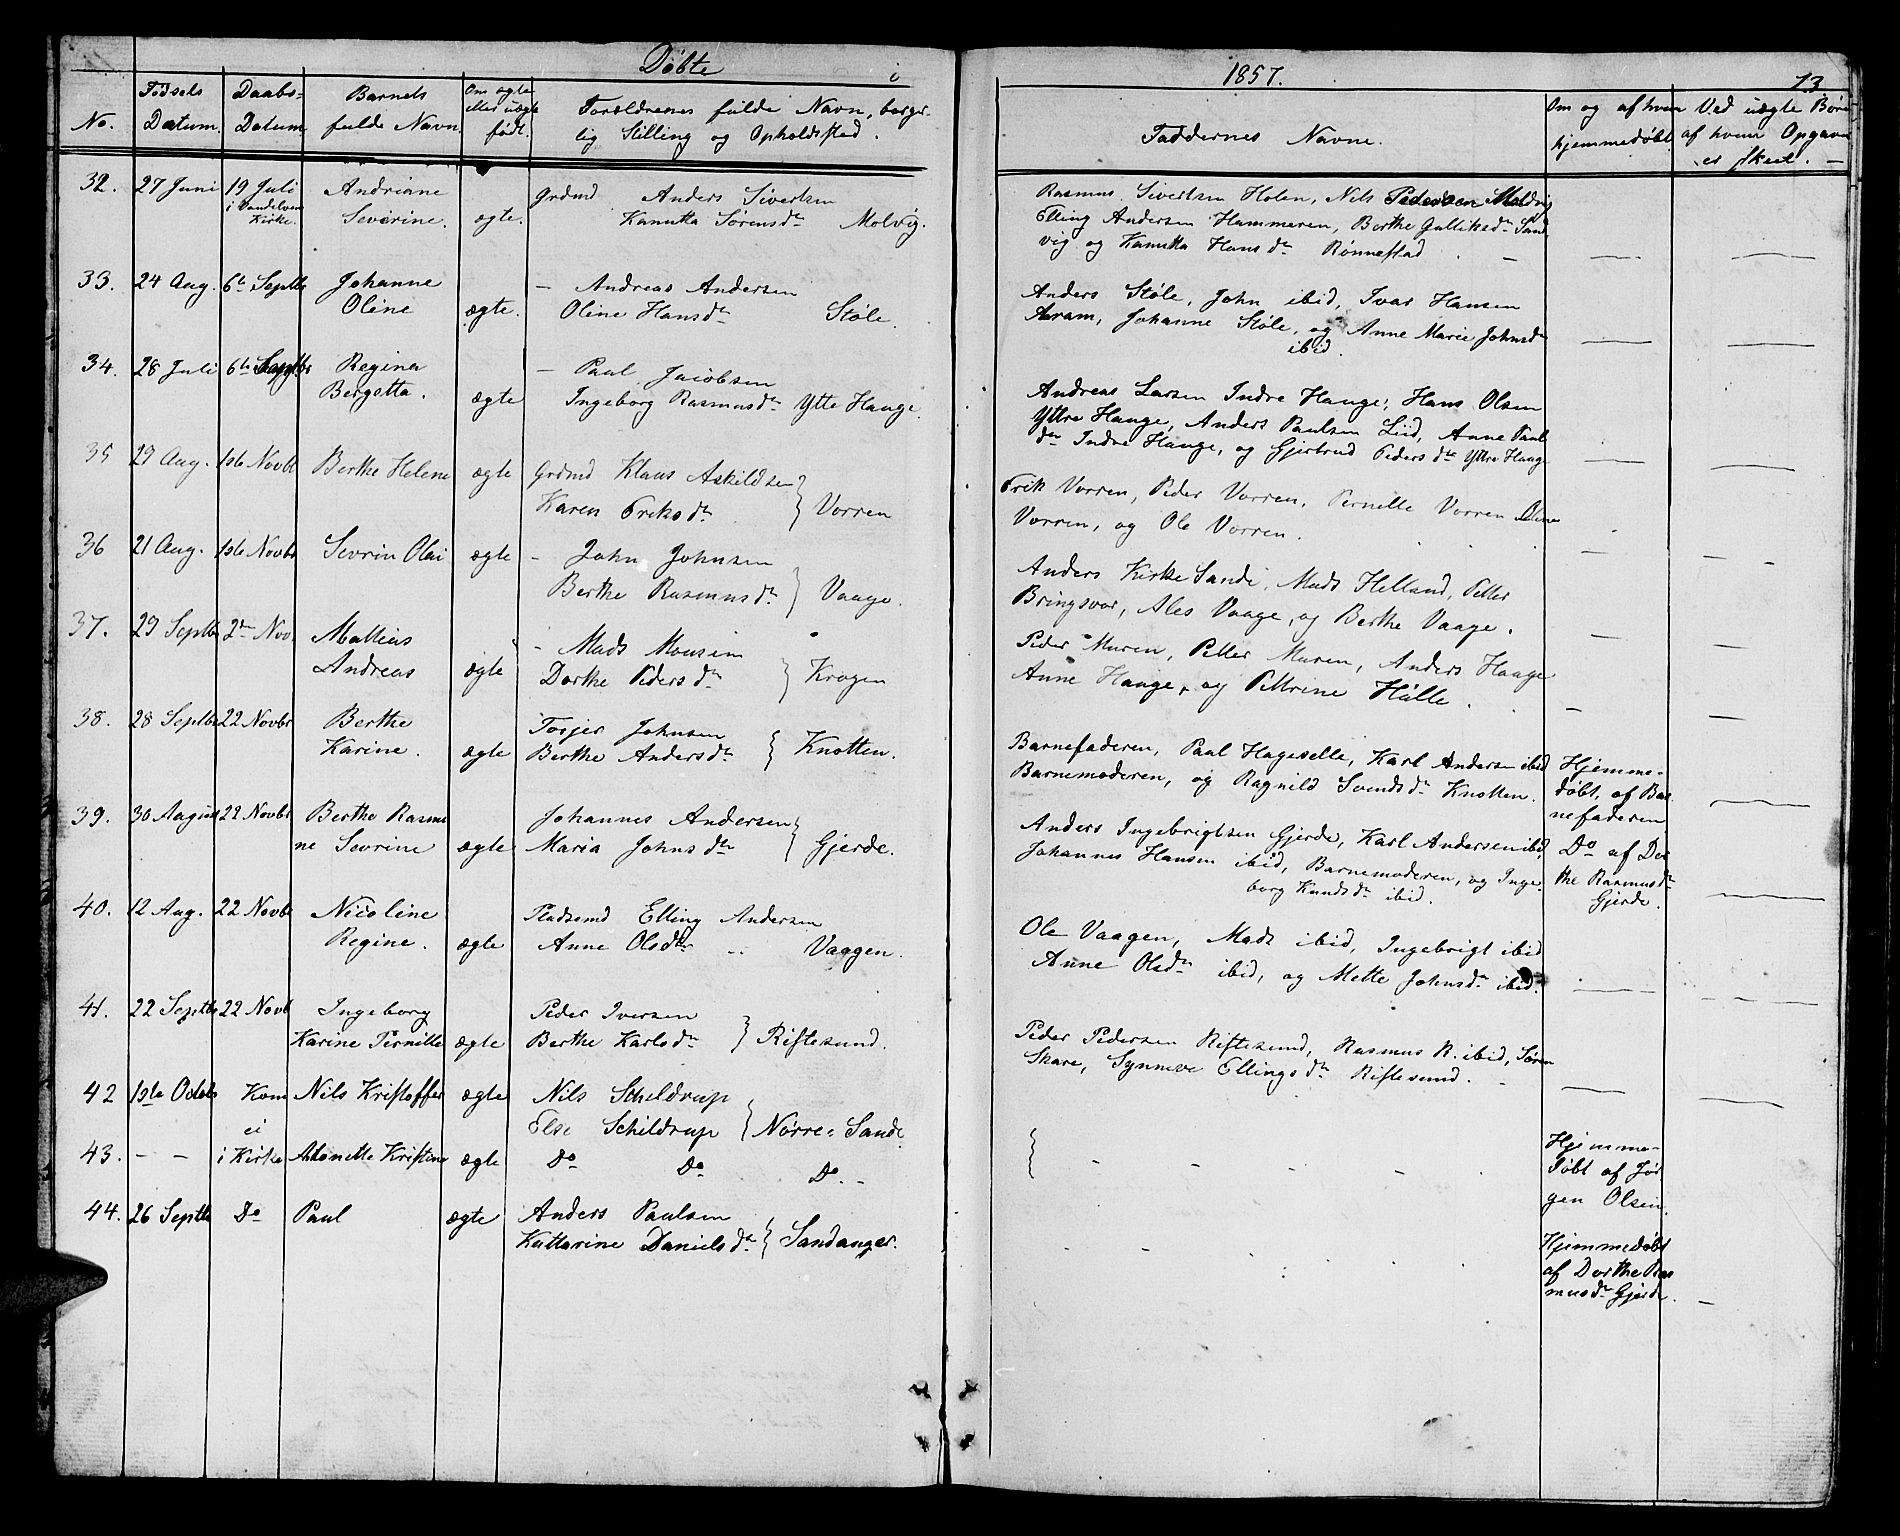 Døbte i
1857. 13
No.
Fødsels Datum
Daabs-Datum
Barnets fulde Navn
Om ægte eller uægte født.
Forældrenes fulde Navn, borgerlig Stilling og Opholdsted.
Faddernes Navne.
Om og af hvem hjemmedøbt
Ved uægte Børn af hvem Opgaven er skeet. —
32. 27 Juni 19 Juli Andriane Grdmd Anders Sivertsen
i Vandelven Kirke. Severine. ægte. Kanutta Sørensdr Molvig.
Rasmus Sivertsen Holen, Nils Pedersen Moldvig
Elling Andersen Hammeren, Berthe Gulliksdr Sand
vig og Kanutta Hansdr Rønnestad
33. 24 Aug. 6te Septbr Johanne — Andreas Andersen
Oline ægte. Oline Hansdr Støle.
Anders Støle, John ibid, Ivar Hansen
Aram, Johanne Støle, og Anne Marie Johnsdr
ibid.
34. 28 Juli 6te Septbr Regina — Paul Jacobsen
Bergetta. ægte Ingeborg Rasmusdr Ytte Hauge.
Andreas Larsen Indre Hauge, Hans Olsen
Yttre Hauge, Anders Paulsen Liid, Anne Paul
dr Indre Hauge, og Gjertrud Pedersdr Yttre Hauge
35 29 Aug. 1ste Novbr Berthe Helene ægte Grdmd Klaus Askildsen
Karen Eriksdr } Vorren
Erik Vorren, Peder Vorren, Pernille Vorren Oline
Vorren, og Ole Vorren.
36 21 Aug. 1ste Novbr Sevrin Olai ægte — John Johnsen
Berthe Rasmusdr } Vaage.
Anders Kirke Sande, Mads Helland, Petter
Bringsvor, Ales Vaage, og Berthe Vaage.
37. 29 Septbr 2den Nov. Mattias — Mads Monsen
Andreas ægte Dorthe Pedersdr } Krogen
Peder Muren, Petter Muren, Anders Hauge
Anne Hauge, og Pettrine Hålle.
38. 28 Septbr 22 Novbr Berthe Torjer Johnsen
Karine. ægte Berthe Andersdr } Knotten.
Barnefaderen, Paul Hageselle, Karl Andersen ibid
Barnemoderen, og Ragnild Svendsdr Knotten.
Hjemme-
døbt. af Bar
nefaderen
39. 30 August 22 Novbr Berthe Rasmi Johannes Andersen
ne Sevrine ægte Maria Johnsdr } Gjerde.
Anders Ingebrigtsen Gjerde, Karl Andersen ibid,
Johannes Hansen ibid, Barnemoderen, og Inge
borg Knudsdr ibid.
Do af Dor
the Rasmusdr
Gjerde.
40. 12 Aug. 22 Novbr Nicoline Pladsemd Elling Andersen
Regine. ægte Anne Olsdtr Vaagen.
Ole Vaagen, Mads ibid, Ingebrigt ibid
Anne Olsdr ibid, og Mette Johnsdr ibid.
41. 22 Septbr 22 Novb Ingeborg Peder Iversen
Karine Pernille ægte Berthe Karlsdr } Riftesund.
Peder Pedersen Riftesund, Rasmus R. ibid, Søren
Skare, Synneve Ellingsdr Riftesund.
42 1ste Octob Kom Nils Kristoffer ægte Nils Scheldrup
ei Else Schildrup } Nørre-Sande
43. — — i Kirke Antonette Kristine ægte Do Do Do. —
Hjemme-
døbt af Jør
gen Olsen.
44. 26 Septbr Do Paul ægte Anders Paulsen
Kattarine Danielsdr } Sandanger.
Hjemmedøbt
af Dorthe Ras
musdr Gjerde.